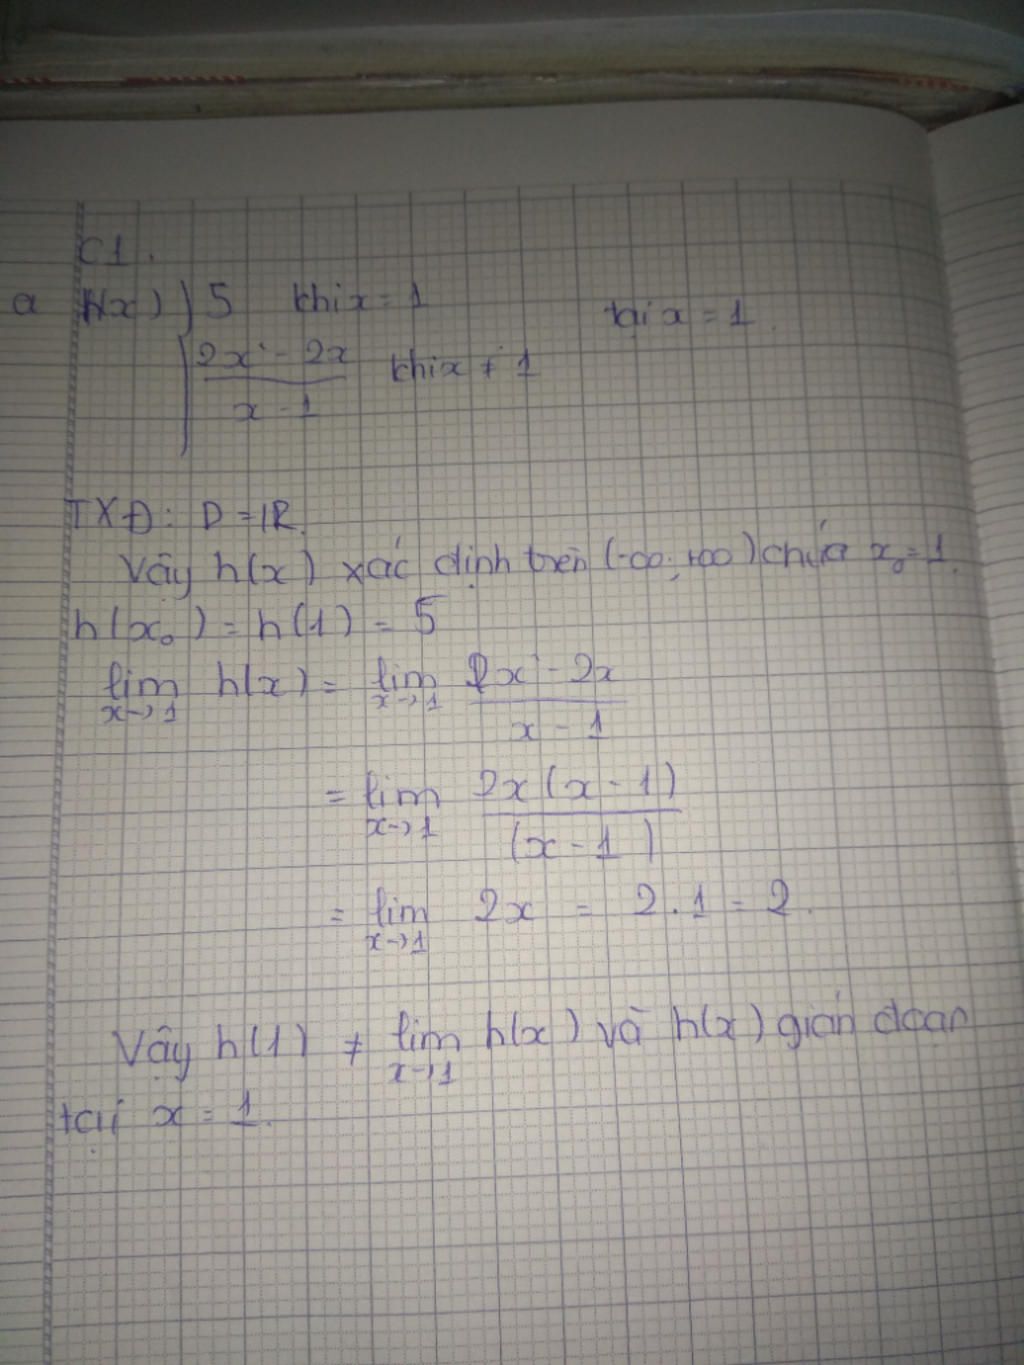 C1.
a h(x) { 5 khi x = 1 tại x = 1.
2x² - 2x / x - 1 khi x ≠ 1
TXĐ: D = IR.
Vậy h(x) xác định trên (-∞; +∞) chứa x₀ = 1.
h(x₀) = h(1) = 5
lim x→1 h(x) = lim x→1 2x² - 2x / x - 1
= lim x→1 2x(x - 1) / (x - 1)
= lim x→1 2x = 2.1 = 2.
Vậy h(1) ≠ lim x→1 h(x) và h(x) gián đoạn
tại x = 1.